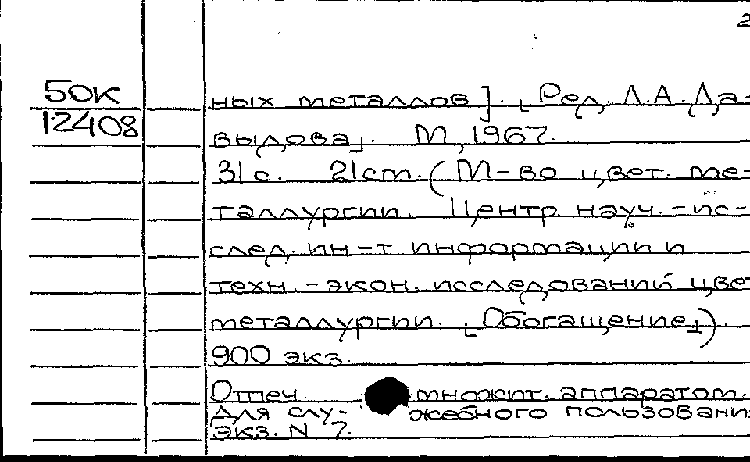 2
50К
12408
ных металлов]. [Ред. Л.А. Да-
выдова]. М., 1967.
31 с. 21 cm. (М-во цвет. ме-
таллургии. Центр. науч.-ис-
след. ин-т информации и
техн.-экон. исследований цвет
металлургии. [Обогащение]).
900 экз.
Отпеч. множит. аппаратом.
Для слу- жебного пользовани
экз. N 7.